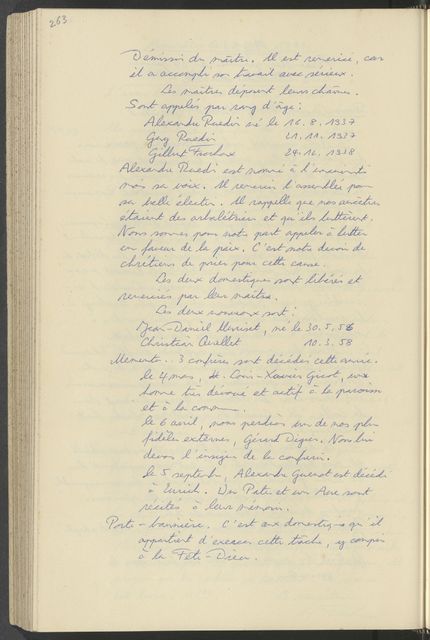 263
Démission du maître. Il est remercié, car
il a accompli son travail avec sérieux.
Les maîtres déposent leurs chaînes.
Sont appelés par rang d'âge :
Alexandre Ruedin né le 16.8.1937
Guy Ruedin 21.11.1937
Gilbert Frochaux 24.12.1938
Alexandre Ruedi est nommé à l'unanimité
moins sa voix. Il remercie l'assemblée pour
sa belle élection. Il rappelle que nos ancêtres
étaient des arbalétriers et qu'ils luttèrent.
Nous sommes pour notre part appelés à lutter
en faveur de la paix. C'est notre devoir de
chrétiens de prier pour cette cause.
Les deux domestiques sont libérés et
remerciés par leur maître.
Les deux nouveaux sont :
Jean-Daniel , né le 30.5.56
Christian Quellet 10.3.58
Memento.. 3 confrères sont décédés cette année.
le 4 mars, M. -Xavier , un
homme très dévoué et actif à la paroisse
et à la commune.
le 6 avril, nous perdions un de nos plus
fidèles externes, Gérard Digier. Nous lui
devons l'insigne de la confrérie.
le 5 septembre, Alexandre Guenot est décédé
à Zurich. Un Pater et un Ave sont
récités à leur mémoire.
Porte-bannière. C'est aux domestiques qu'il
appartient d'exercer cette tâche, y compris
à la Fête-Dieu.